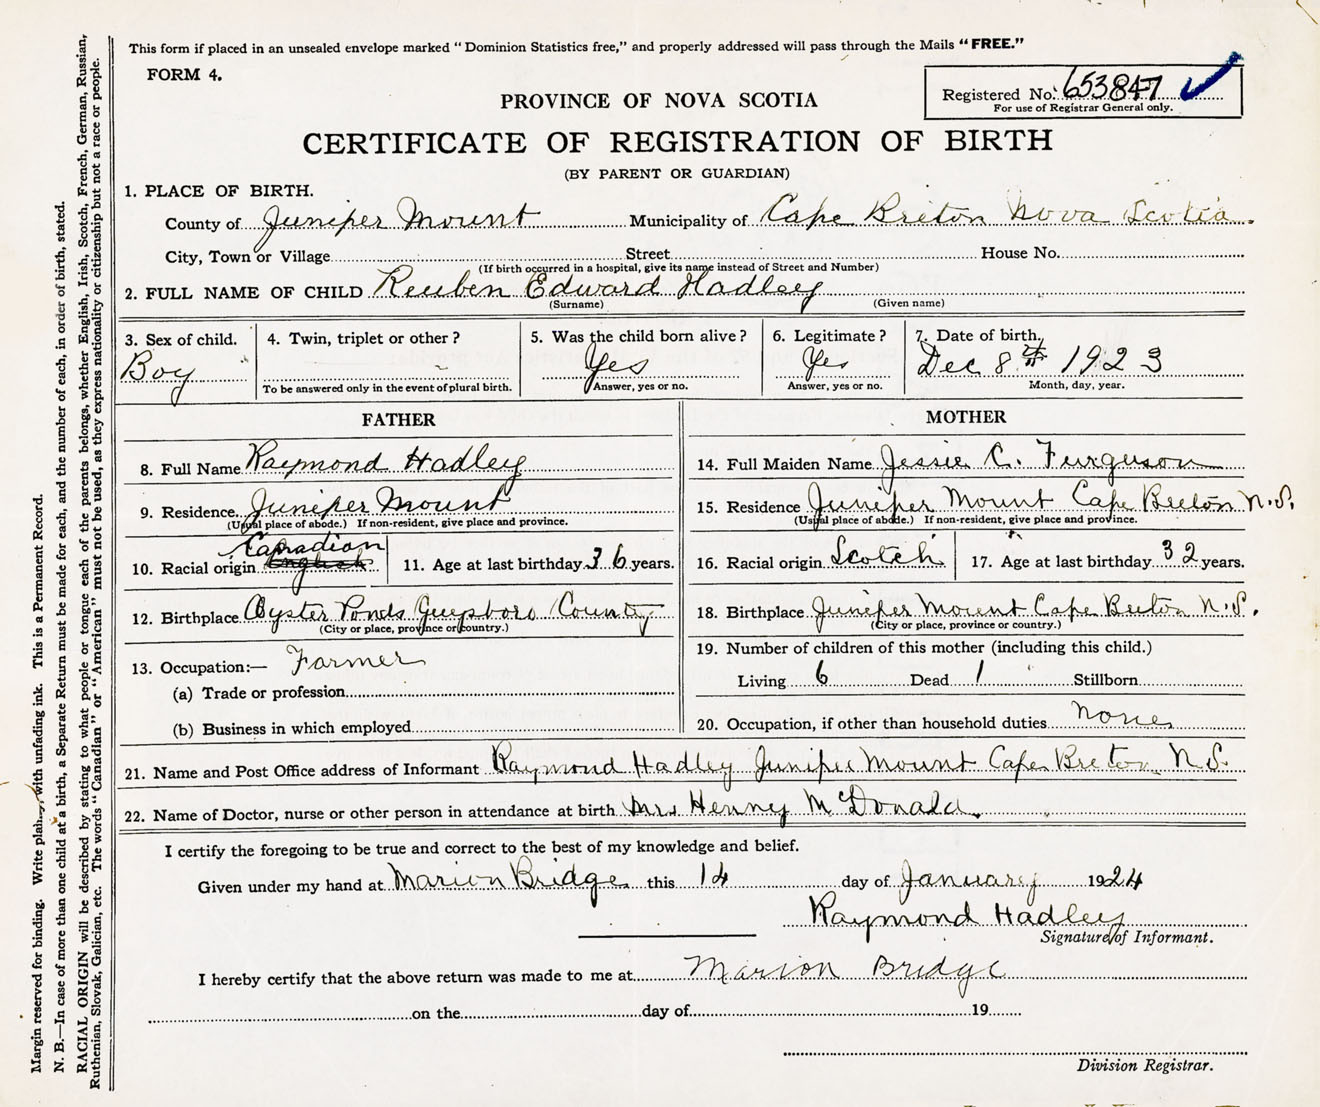 This form if placed in an unsealed envelope marked "Dominion Statistics free," and properly addressed will pass through the Mails "FREE."
FORM 4.
Registered No. 653847
For use of Registrar General only.
PROVINCE OF NOVA SCOTIA
CERTIFICATE OF REGISTRATION OF BIRTH
(BY PARENT OR GUARDIAN)
1. PLACE OF BIRTH.
County of Juniper Mount Municipality of Cape Breton Nova Scotia
City, Town or Village Street House No.
(If birth occurred in a hospital, give its name instead of Street and Number)
2. FULL NAME OF CHILD Reuben Edward Hadley
(Surname) (Given name)
3. Sex of child. 4. Twin, triplet or other? 5. Was the child born alive? 6. Legitimate? 7. Date of birth,
Boy Yes Yes Dec 8th 1923
To be answered only in the event of plural birth. Answer, yes or no. Answer, yes or no. Month, day, year.
FATHER MOTHER
8. Full Name Raymond Hadley 14. Full Maiden Name Jessie C. Furguson
9. Residence Juniper Mount 15. Residence Juniper Mount Cape Breton N.S.
(Usual place of abode.) If non-resident, give place and province. (Usual place of abode.) If non-resident, give place and province.
Canadian
10. Racial origin English 11. Age at last birthday 36 years. 16. Racial origin Scotch 17. Age at last birthday 32 years.
12. Birthplace Oyster Ponds Guysboro County 18. Birthplace Juniper Mount Cape Breton N.S.
(City or place, province or country.) (City or place, province or country.)
13. Occupation:— Farmer 19. Number of children of this mother (including this child.)
(a) Trade or profession Living 6 Dead 1 Stillborn
(b) Business in which employed 20. Occupation, if other than household duties None
21. Name and Post Office address of Informant Raymond Hadley Juniper Mount Cape Breton N.S.
22. Name of Doctor, nurse or other person in attendance at birth Mrs Henny McDonald.
I certify the foregoing to be true and correct to the best of my knowledge and belief.
Given under my hand at Marion Bridge this 14 day of January 1924
Raymond Hadley
Signature of Informant.
I hereby certify that the above return was made to me at Marion Bridge
on the day of 19
Division Registrar.
Margin reserved for binding. Write plainly, with unfading ink. This is a Permanent Record.
N. B.—In case of more than one child at a birth, a Separate Return must be made for each, and the number of each, in order of birth, stated.
RACIAL ORIGIN will be described by stating to what people or tongue each of the parents belongs, whether English, Irish, Scotch, French, German, Russian,
Ruthenian, Slovak, Galician, etc. The words "Canadian" or "American" must not be used, as they express nationality or citizenship but not a race or people.